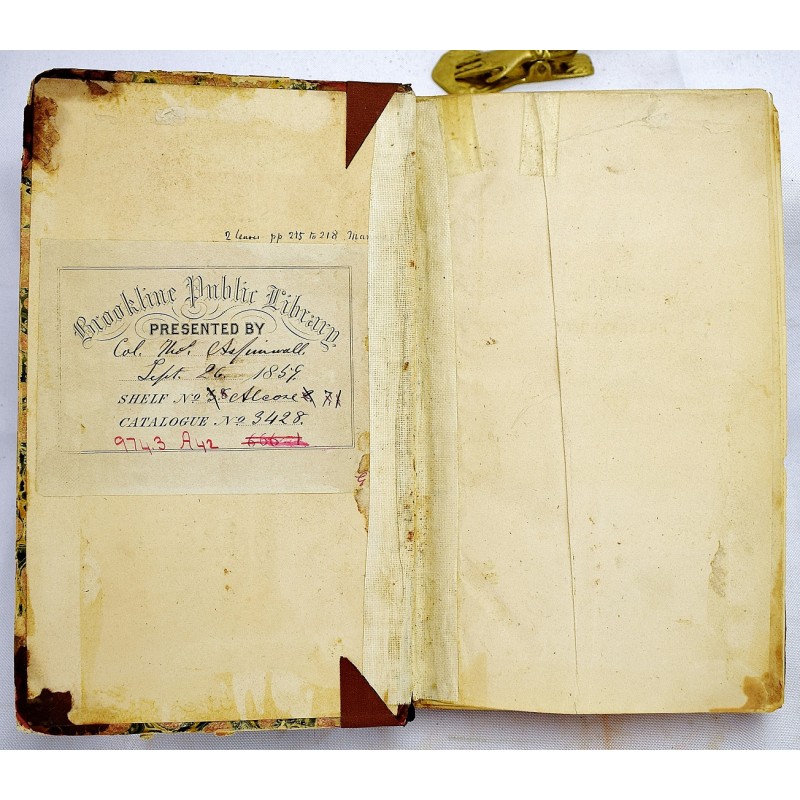 2 leaves pp 215 to 218
Brookline Public Library
PRESENTED BY
Col. Thos. Aspinwall
Sept. 26 1859
SHELF No Alcove 71
CATALOGUE No 3428.
974.3 A42
G